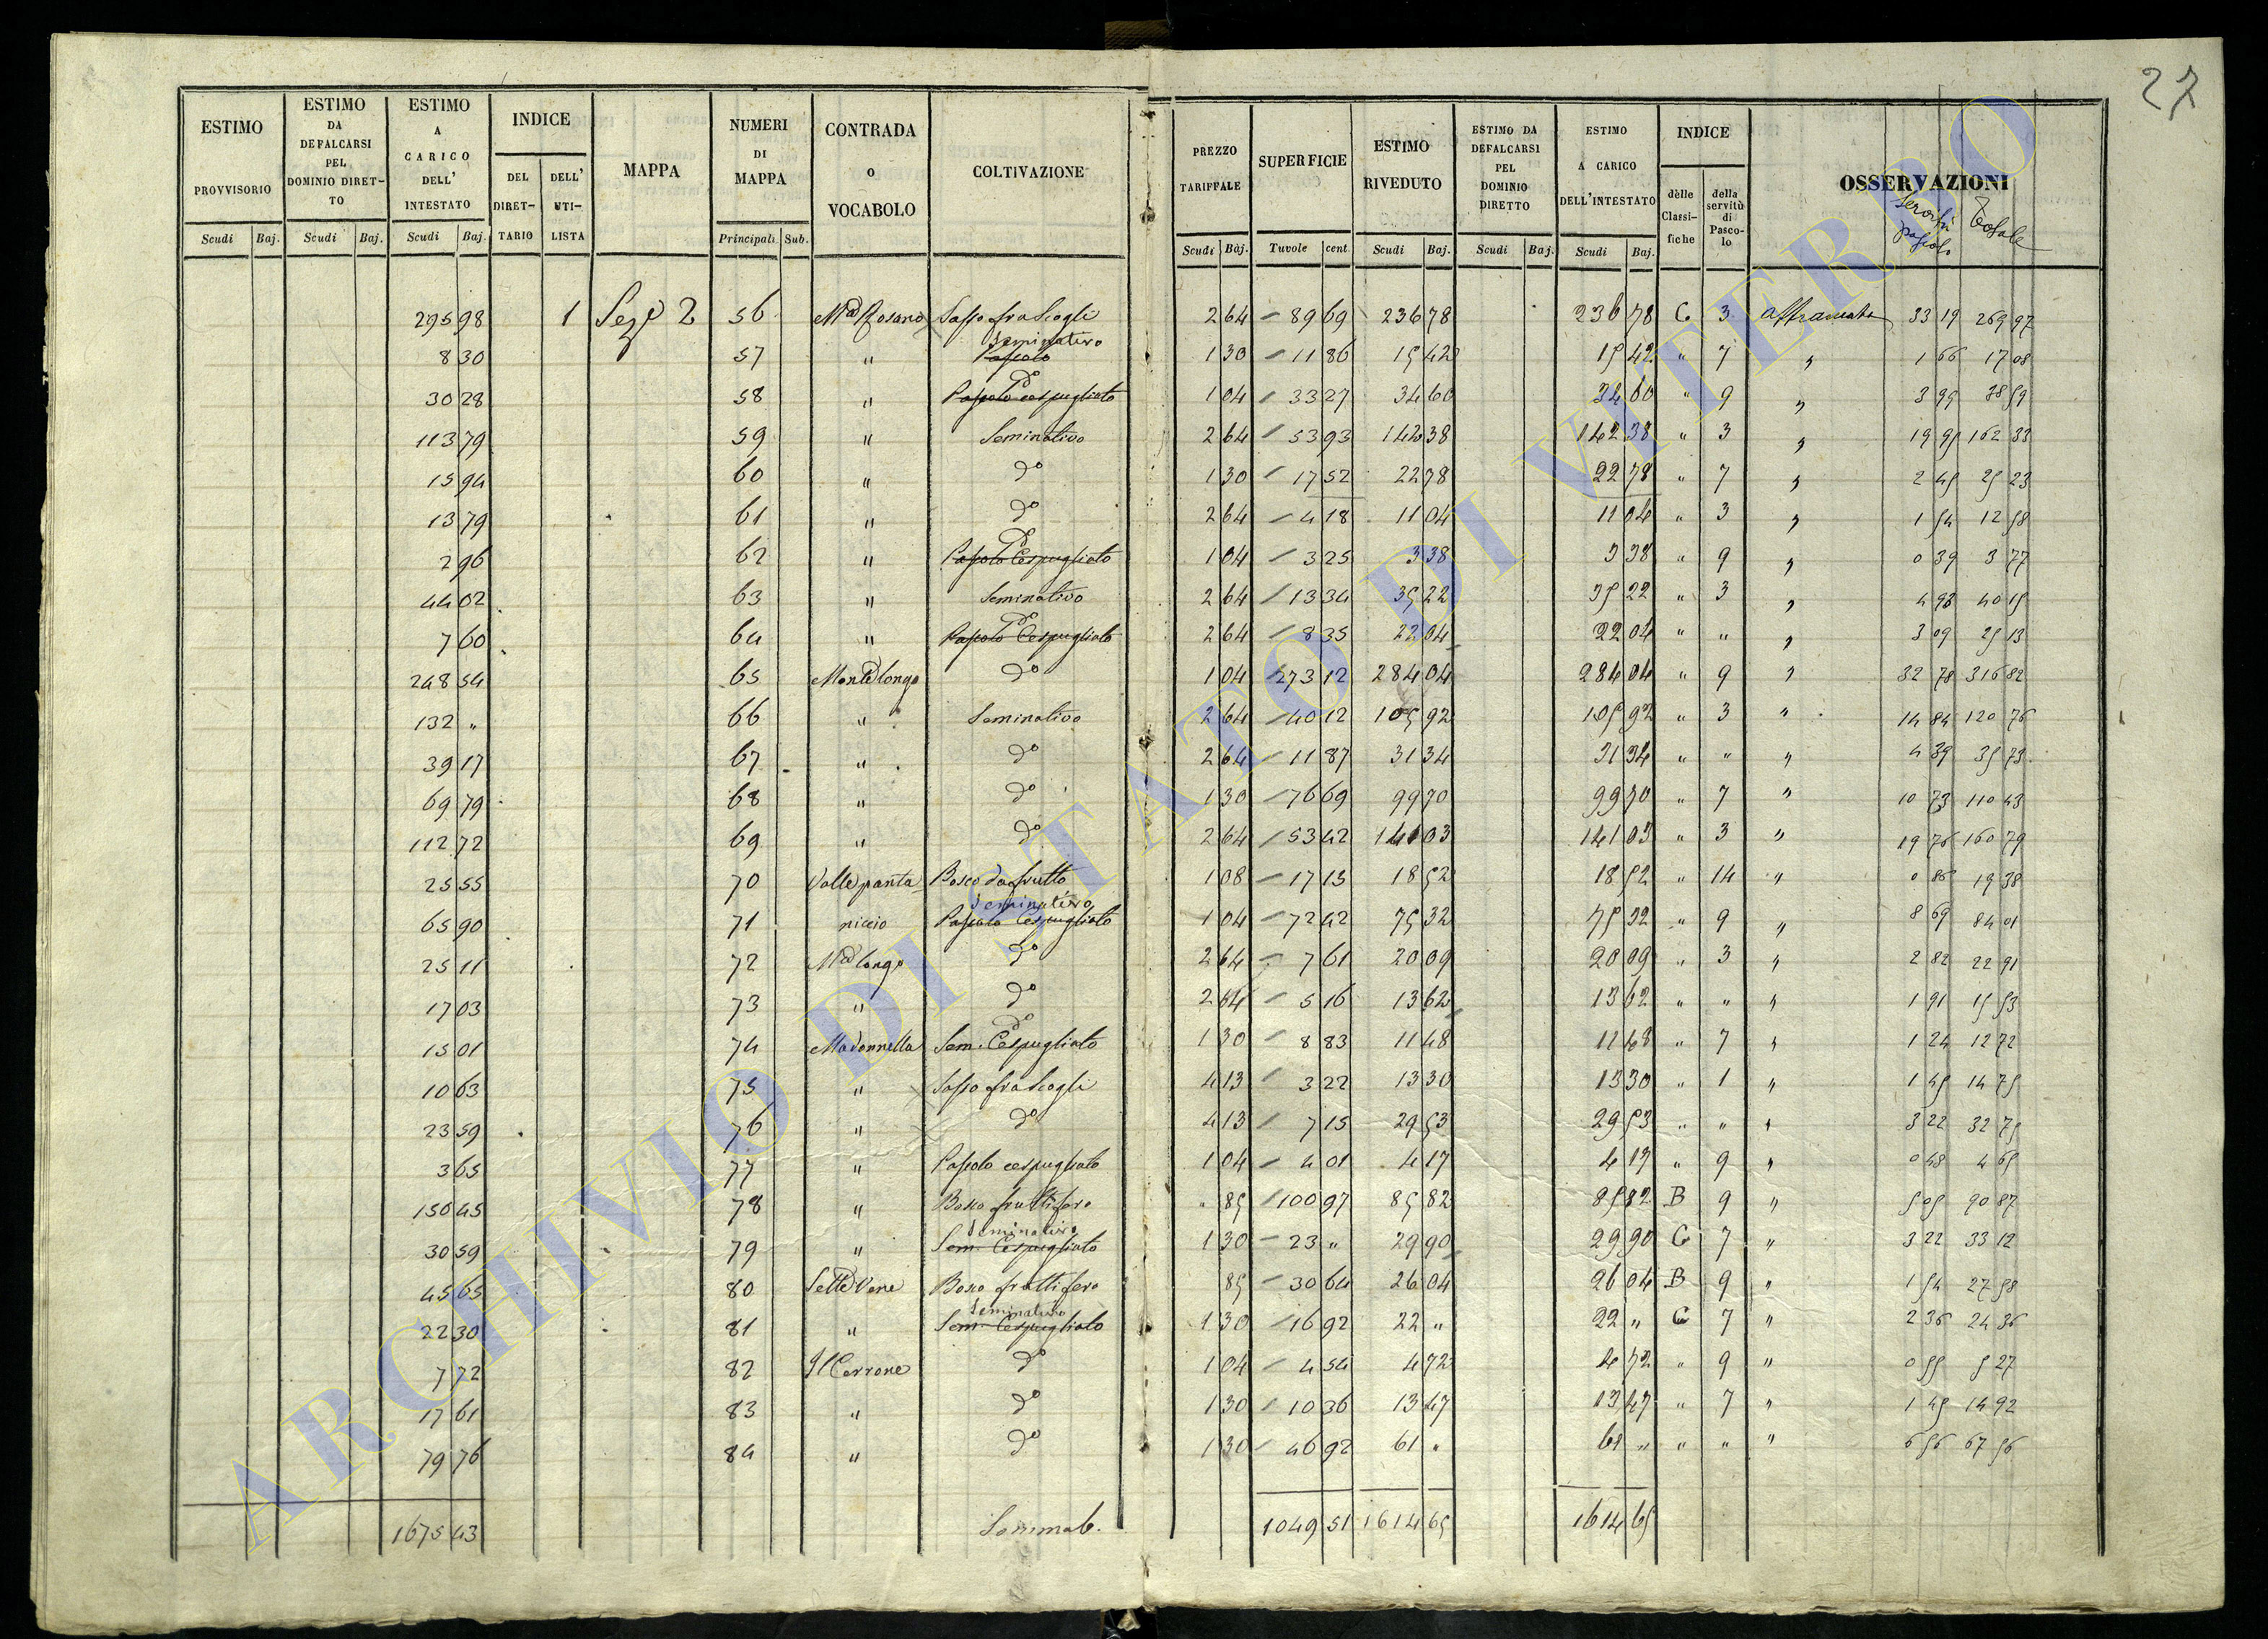 27
ESTIMO PROVVISORIO Scudi Baj.
ESTIMO DA DEFALCARSI PEL DOMINIO DIRET- TO Scudi Baj.
ESTIMO A CARICO DELL' INTESTATO Scudi Baj.
INDICE DEL DIRET- TARIO DELL' UTI- LISTA
MAPPA
NUMERI DI MAPPA Principali Sub.
CONTRADA o VOCABOLO
COLTIVAZIONE
PREZZO TARIFFALE Scudi Baj.
SUPERFICIE Tavole cent.
ESTIMO RIVEDUTO Scudi Baj.
ESTIMO DA DEFALCARSI PEL DOMINIO DIRETTO Scudi Baj.
ESTIMO A CARICO DELL'INTESTATO Scudi Baj.
INDICE delle Classi- fiche della servitù di Pasco- lo
OSSERVAZIONI
Totale
295 98 1 Seze 2 56 Sasso fra Scogli 2 64 89 69 236 78 236 78 C 3 affrancata 33 19 269 97
8 30 57 " Seminativo Pascolo 1 30 11 86 15 42 15 42 " 7 " 1 66 17 08
30 28 58 " do Pascolo cespugliato 1 04 33 27 34 60 34 60 " 9 " 3 99 38 59
113 79 59 " Seminativo 2 64 53 93 142 38 142 38 " 3 " 19 95 162 33
15 94 60 " do 1 30 17 52 22 78 22 78 " 7 " 2 45 25 23
13 79 61 " do 2 64 4 18 11 04 11 04 " 3 " 1 54 12 58
2 96 62 " do Pascolo Cespugliato 1 04 3 25 3 38 3 38 " 9 " 0 39 3 77
44 02 63 " Seminativo 2 64 13 34 35 22 35 22 " 3 " 4 93 40 15
7 60 64 " do Pascolo Cespugliato 2 64 8 35 22 04 22 04 " " " 3 09 25 13
248 54 65 Monte longo do 1 04 273 12 284 04 284 04 " 9 " 32 78 316 82
132 " 66 " Seminativo 2 64 40 12 105 92 105 92 " 3 " 14 84 120 76
39 17 67 " do 2 64 11 87 31 34 31 34 " " " 4 39 35 73
69 79 68 " do 1 30 76 69 99 70 99 70 " 7 " 10 73 110 43
112 72 69 " do 2 64 53 42 141 03 141 03 " 3 " 19 76 160 79
25 55 70 Valle panta Bosco da frutto 1 08 17 15 18 52 18 52 " 14 " 0 86 19 38
65 90 71 niccio Seminativo Pascolo Cespugliato 1 04 72 42 75 32 75 32 " 9 " 8 69 84 01
25 11 72 Mte longo do 2 64 7 61 20 09 20 09 " 3 " 2 82 22 91
17 03 73 " do 2 64 5 16 13 62 13 62 " " " 1 91 15 53
15 01 74 Madonnella do Sem. Cespugliato 1 30 8 83 11 48 11 48 " 7 " 1 24 12 72
10 63 75 " Sasso fra Scogli 4 13 3 22 13 30 13 30 " 1 " 1 45 14 75
23 59 76 " do 4 13 7 15 29 53 29 53 " " " 3 22 32 75
3 65 77 " Pascolo cespugliato 1 04 4 01 4 17 4 17 " 9 " 0 48 4 65
150 45 78 " Bosco fruttifero " 85 100 97 85 82 85 82 B 9 " 5 05 90 87
30 59 79 " Seminativo Sem. Cespugliato 1 30 23 " 29 90 29 90 C 7 " 3 22 33 12
45 65 80 Sette Vene Bosco fruttifero 85 30 64 26 04 26 04 B 9 " 1 54 27 58
22 30 81 " Seminativo Sem. Cespugliato 1 30 16 92 22 " 22 " C 7 " 2 36 24 36
7 72 82 Il Cerrone do 1 04 4 54 4 72 4 72 " 9 " 0 55 5 27
17 61 83 " do 1 30 10 36 13 47 13 47 " 7 " 1 45 14 92
79 76 84 " do 1 30 46 92 61 " 61 " " " " 6 56 67 56
1675 43 1049 51 1614 65 1614 65
ARCHIVIO DI STATO DI VITERBO